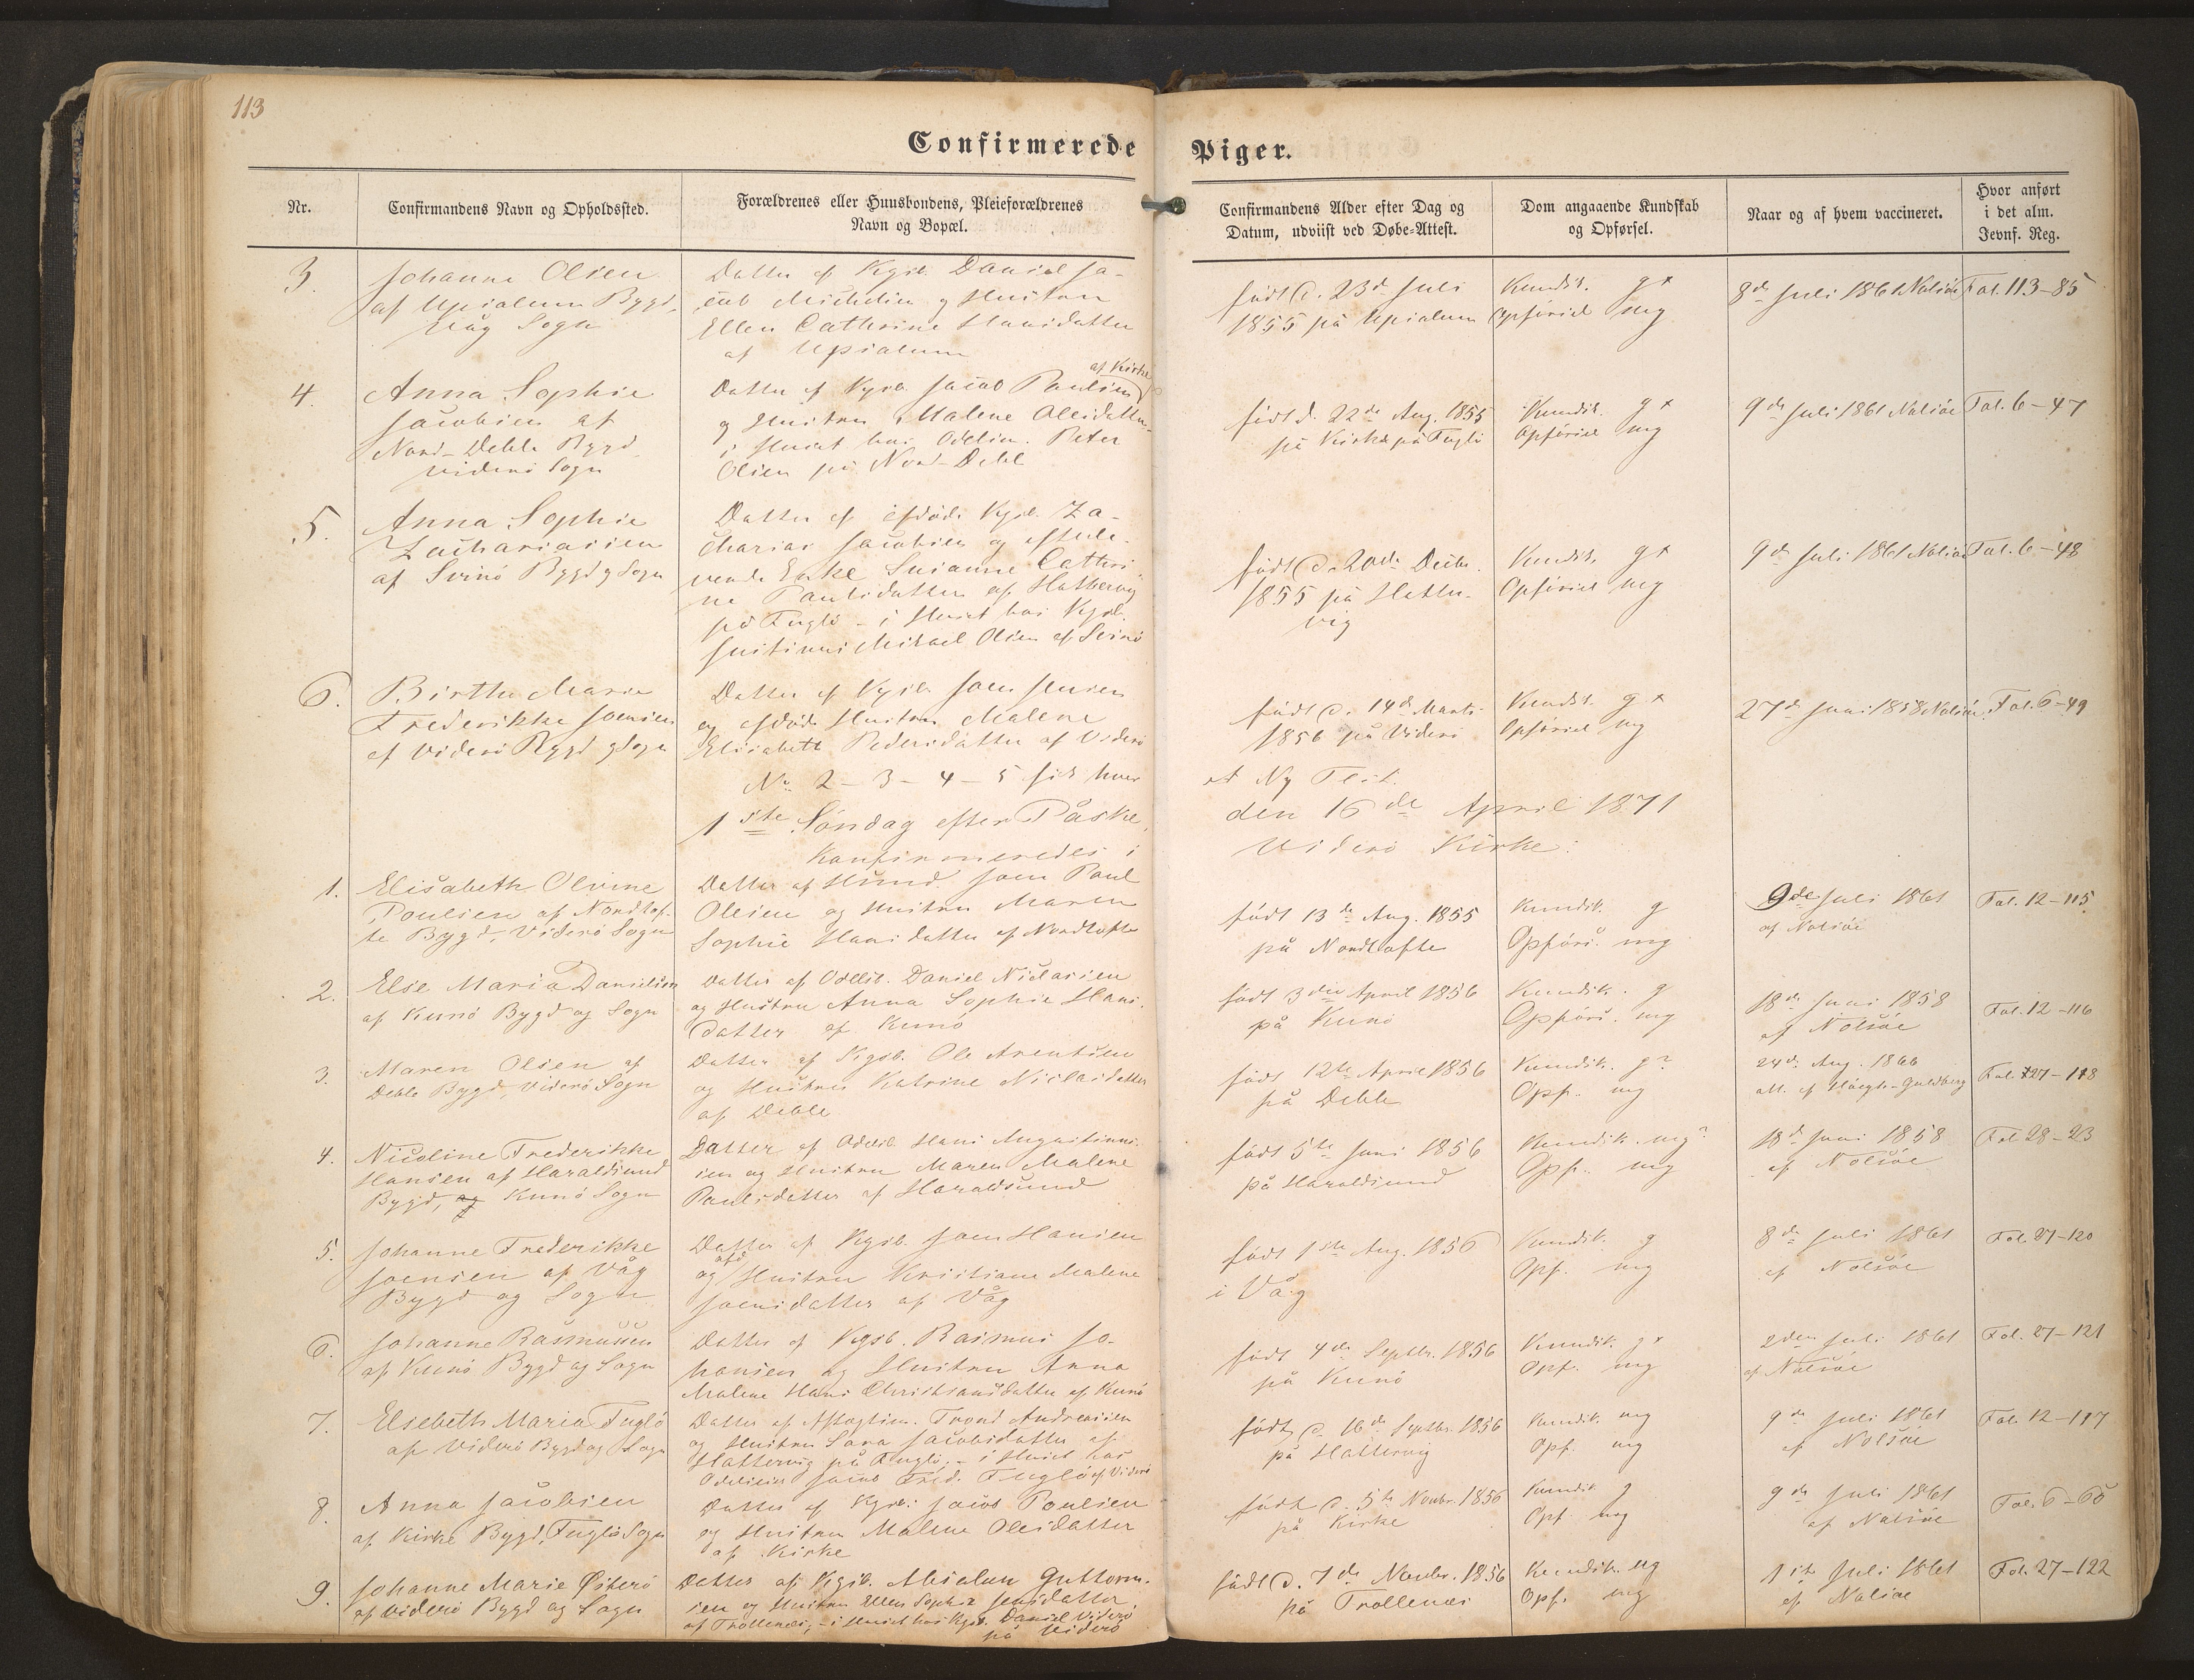 113
Confirmerede Piger.
Nr.
Confirmandens Navn og Opholdssted.
Forældrenes eller Huusbondens, Pleieforældrenes
Navn og Bopæl.
Confirmandens Alder efter Dag og
Datum, udviist ved Døbe-Attest.
Dom angaaende Kundskab
og Opførsel.
Naar og af hvem vaccineret.
Hvor anført
i det alm.
Jevnf. Reg.
3.
Johanne Olsen
af Upsalum Bygd,
Våg Sogn
Datter af Kgsb. Daniel Ja-
cob Michelsen og Hustru
Ellen Cathrine Hansdatter
af Upsalum
født d. 23de Juli
1855 på Upsalum
Kundsk. g+
Opførsel mg
8de Juli 1861 Nolsöe
Fol. 113-85
4.
Anna Sophie
Jacobsen af
Nord-Deble Bygd
Viderö Sogn
Datter af Kgsb. Jacob Poulsen af Kirke
og Hustru Malene Olesdatter
i Huset hos Odelsm. Peter
Olsen på Nord-Debl
født d. 22de Aug. 1855
på Kirke på Fuglö
Kundsk. g+
Opførsel mg
9de Juli 1861 Nolsöe
Fol. 6-47
5.
Anna Sophie
Zachariasen
af Svinö Bygd og Sogn
Datter af afdøde Kgsb. Za-
charias Jacobsen og efterle-
vende Enke Susanne Cathri-
ne Poulsdatter af Hattervig
på Fuglö - i Huset hos Kgsb.
Justinus Mikael Olsen af Svinö
født d. 20de Decbr.
1855 på Hatter-
vig
Kundsk. g+
Opførsel mg
9de Juli 1861 Nolsöe
Fol. 6-48
6.
Birthe Marie
Frederikke Joensen
af Viderö Bygd og Sogn
Datter af Kgsb. Joen Jensen
og afdøde Hustru Malene
Elisabeth Pedersdatter af Viderö
født d. 14de Marts
1856 på Viderö
Kundsk. g+
Opførsel mg
27de Juni 1858 Nolsöe
Fol. 6-49
No 2-3-4-5 fik hver et Ny Test.
1ste Søndag efter Påske, den 16de April 1871
Konfirmeredes i Viderö Kirke:
1.
Elisabeth Olvine
Poulsen af Nordtof-
te Bygd, Viderö Sogn
Datter af Huusmd. Joen Paul
Olsen og Hustru Maren
Sophie Hansdatter af Nordtofte
født 13de Aug. 1855
på Nordtofte
Kundsk. g
Opførs. mg
9de Juli 1861
af Nolsöe
Fol. 12-115
2.
Else Maria Danielsen
af Kunö Bygd og Sogn
Datter af Odelsb. Daniel Niclasen
og Hustru Anna Sophie Hans-
datter af Kunö
født 3die April 1856
på Kunö
Kundsk. g
Opførs. mg
18de Juni 1858
af Nolsöe
Fol. 12-116
3.
Maren Olsen af
Deble Bygd, Viderö Sogn
Datter af Kgsb. Ole Arentsen
og Hustru Katrine Niclasdatter
af Deble
født 12te April 1856
på Deble
Kundsk. g?
Opf. mg
24de Aug. 1866
att. af Høegh-Guldberg
Fol. 27-118
4.
Nicoline Frederikke
Hansen af Haraldsund
Bygd, Kunö Sogn
Datter af Odelsb. Hans Augustinus-
sen og Hustru Maren Malene
Poulsdatter af Haraldsund
født 5te Juni 1856
på Haraldsund
Kundsk. mg?
Opf. mg
18de Juni 1858
af Nolsöe
Fol 28-23
5.
Johanne Frederikke
Joensen af Våg
Bygd og Sogn
Datter af Kgsb. Joen Hansen
og afd Hustru Kristiane Malene
Joensdatter af Våg
født 1ste Aug. 1856
i Våg
Kundsk. g
Opf. mg
8de Juli 1861
af Nolsöe
Fol. 27-120
6.
Johanne Rasmussen
af Kunö Bygd og Sogn
Datter af Kgsb. Rasmus Jo-
hansen og Hustru Anna
Malene Hans Christiansdatter af Kunö
født 4de Septbr. 1856
på Kunö
Kundsk. g+
Opf. mg
2den Juli 1861
af Nolsöe
Fol. 27-121
7.
Elsebeth Maria Fuglö
af Viderö Bygd og Sogn
Datter af Aftægtsm. Trond Andreasen
og Hustru Sara Jacobsdatter af
Hattervig på Fuglö, - i Huset hos
Odelsm Jacob Fred. Fuglö af Viderö
født d. 16de Septbr. 1856
på Hattervig
Kundsk. mg
Opf. mg
9de Juli 1861
af Nolsöe
Fol. 12-117
8.
Anna Jacobsen
af Kirke Bygd, Fuglö Sogn
Datter af Kgsb. Jacob Poulsen
og Hustru Malene Olesdatter
af Kirke
født d. 5te Novbr. 1856
på Kirke
Kundsk g
Opf. mg
9de Juli 1861
af Nolsöe
Fol. 6-60
9.
Johanne Marie Østerö
af Viderö Bygd og Sogn
Datter af Kgsb. Absalon Guttorm-
sen og Hustru Ellen Sophie Jensdatter
af Trollenæs, - i Huset hos Kgsb. Daniel Viderö
på Viderö
født d. 7de Novbr. 1856
på Trollenæs
Kundsk. ug
Opf. mg
1ste Juli 1861
af Nolsöe
Fol. 27-122